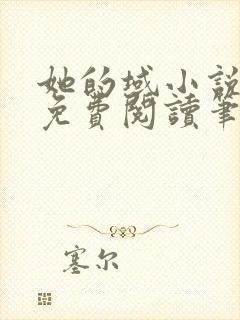 她的域小說
免費閱讀筆
塞尔